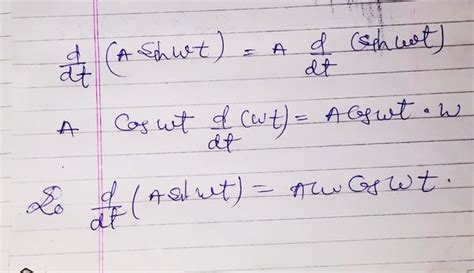 d/dt (A Sin wt) = A d/dt (Sin wt)
A Cos wt d/dt (wt) = A Cos wt · w
So d/dt (A Sin wt) = Aw Cos wt.